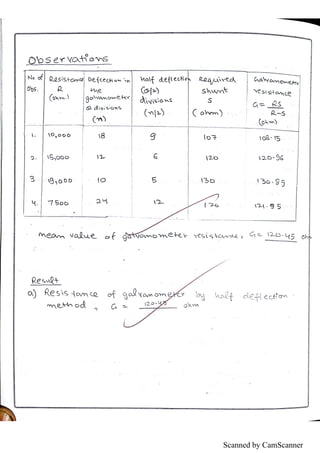 Observations
No of Obs. | Resistance R (ohm) | Deflection in the galvanometer θ divisions (n) | half deflection (θ/2) divisions (n/2) | Required shunt S (ohm) | Galvanometer resistance G = RS / R-S (ohm)
1. | 10,000 | 18 | 9 | 107 | 108.15
2. | 15,000 | 12 | 6 | 120 | 120.96
3. | 19,000 | 10 | 5 | 130 | 130.89
4. | 7500 | 24 | 12 | 120 | 121.95
mean value of galvanometer resistance, G = 120.45 ohm
Result
a) Resistance of galvanometer by half deflection
method, G = 120.45 ohm
Scanned by CamScanner